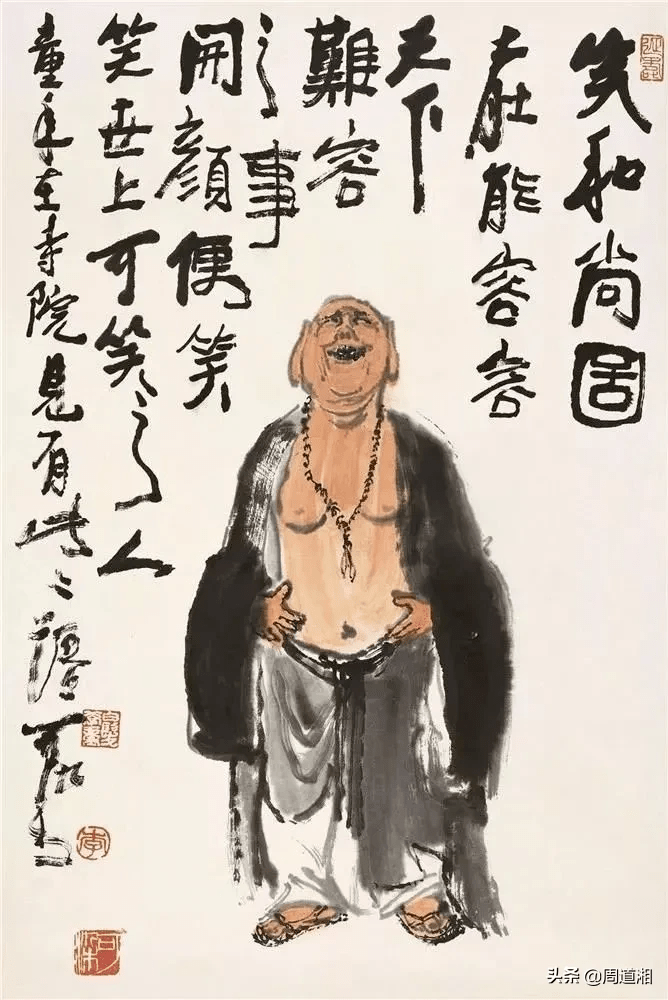 笑和尚圖
大肚能容容
天下
難容
之事
開顏便笑
笑世上可笑之人
童年在寺院見有此
李
可染
头条 @周道湘